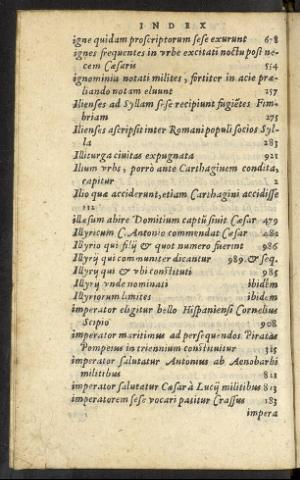 INDEX
igne quidam proscriptorum sese exurunt 678
ignes frequentes in vrbe excitati noctu post ne-
cem Cæsaris 554
ignominia notati milites, fortiter in acie præ-
liando notam eluunt 257
Ilienses ad Syllam sese recipiunt fugiẽtes Fim-
briam 275
Ilienses ascripsit inter Romani populi socios Syl-
la 283
Illiturga ciuitas expugnata 921
Ilium vrbs, porrò ante Carthaginem condita,
capitur 2
Ilio quæ acciderunt, etiam Carthagini accidisse
112
illæsum abire Domitium captũ siuit Cæsar 479
Illyricum C. Antonio commendat Cæsar 482
Illyrio qui filij & quot numero fuerint 986
Illyrij qui communiter dicantur 989 & seq.
Illyry qui & vbi constituti 985
Illyry vnde nominati ibidem
Illyriorum limites ibidem
imperator eligitur bello Hispaniensi Cornelius
Scipio 908
imperator maritimus ad persequendos Piratas
Pompeius in triennium constituitur 325
imperator salutatur Antonius ab Aenobarbi
militibus 821
imperator salutatur Cæsar à Lucij militibus 813
imperatorem sese vocari patitur Crassus 183
impera